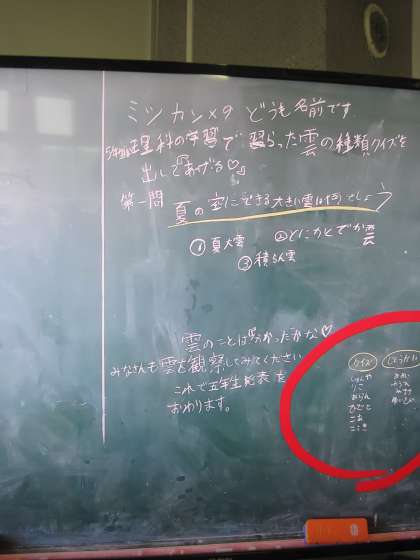 ミツカン×9 どうも名前です
5年生は理科の学習で習らった雲の種類クイズを
出して「あげる♡」
第一問 夏の空にできる大きい雲は何でしょう
①夏大雲 ②とにかくでか雲
③積らん雲
雲のことは分かったかな♡
みなさんも雲を観察してみてください
これで五年生発表を
おわります。
クイズ
しゅんや
りこ
あらん
ひでと
こあ